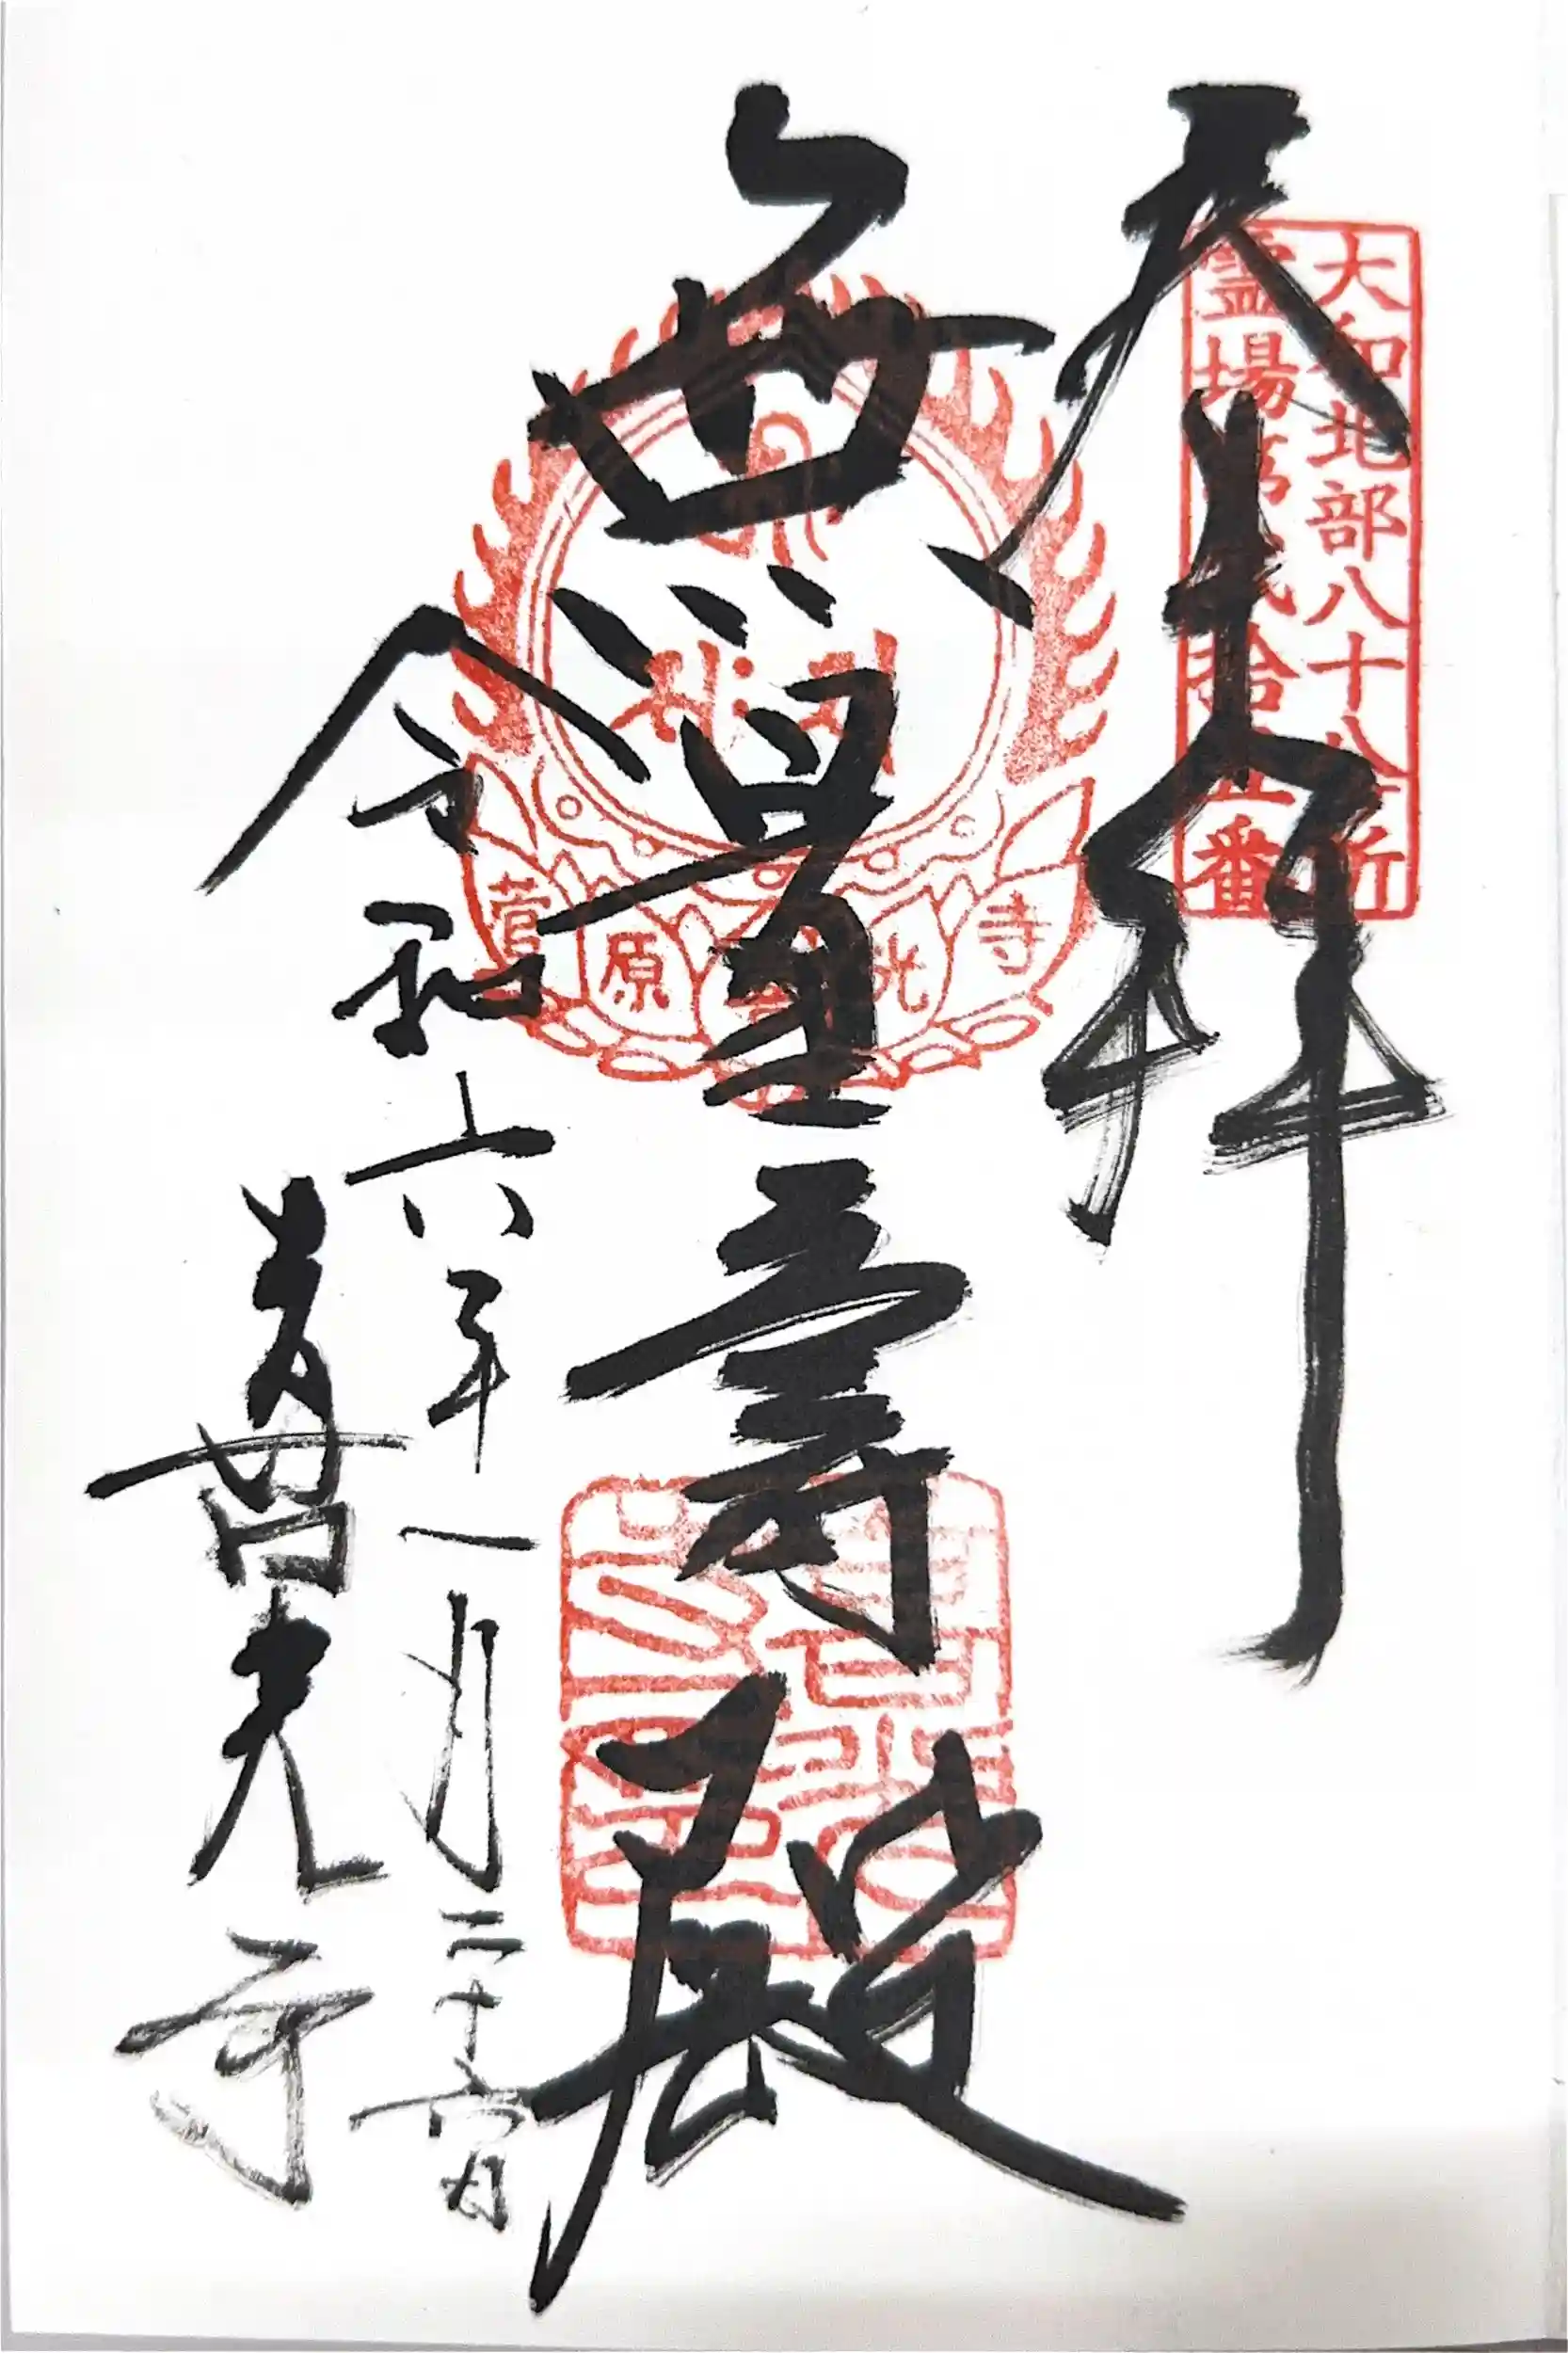 大和北部八十八ヶ所
霊場第弐拾五番
奉拝
無量壽殿
菅原喜光寺
令和六年一月二十六日
喜光寺